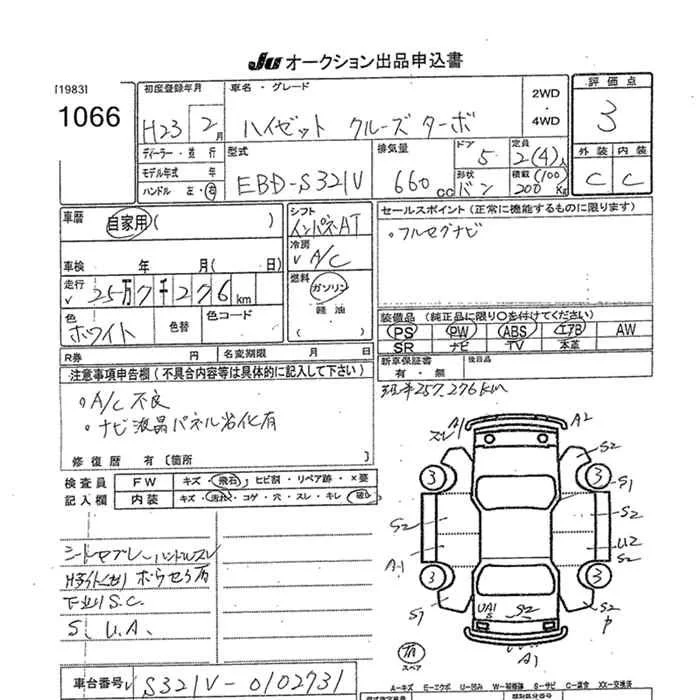 JU オークション出品申込書
[1983]
1066
初度登録年月
H23 2月
車名・グレード
ハイゼット クルーズ ターボ
2WD
・
4WD
評価点
3
外装 内装
C C
ディーラー・並行
モデル年式 年
ハンドル 左・右
型式
EBD-S321V
排気量
660 cc
ドア 5
形状 バン
定員 2(4)人
積載(100) 200 Kg
車歴 自家用( )
車検 年 月( 日)
走行 25万7千276km
色 ホワイト
色替
色コード
シフト インパネAT
冷房 A/C
燃料
ガソリン
軽油
( )
セールスポイント(正常に機能するものに限ります)
・フルセグナビ
装備品(純正品に限り○を付けてください)
PS PW ABS エアB AW
SR ナビ TV 本革
新車保証書 有・無
後日品
R券 円 名変期限 月 日
注意事項申告欄(不具合内容等は具体的に記入して下さい)
・A/C 不良
・ナビ液晶パネル劣化有
修復歴 有〔箇所
257,276km
検査員 記入欄
FW キズ・飛石・ヒビ割・リペア跡・×要
内装 キズ・汚れ・コゲ・穴・スレ・キレ・破レ
ハンドルスレ
下廻りS.C.
S、U.A.
A1 A2
スレ
S2
3 3
S1
S2 S2
A1 U2
S2
3 3
S1 S2
UA1
S S2
P
A1
スペア
車台番号 S321V-0102731
A=キズ E=エクボ U=凹み W=補修跡 S=サビ C=腐食 XX=交換済